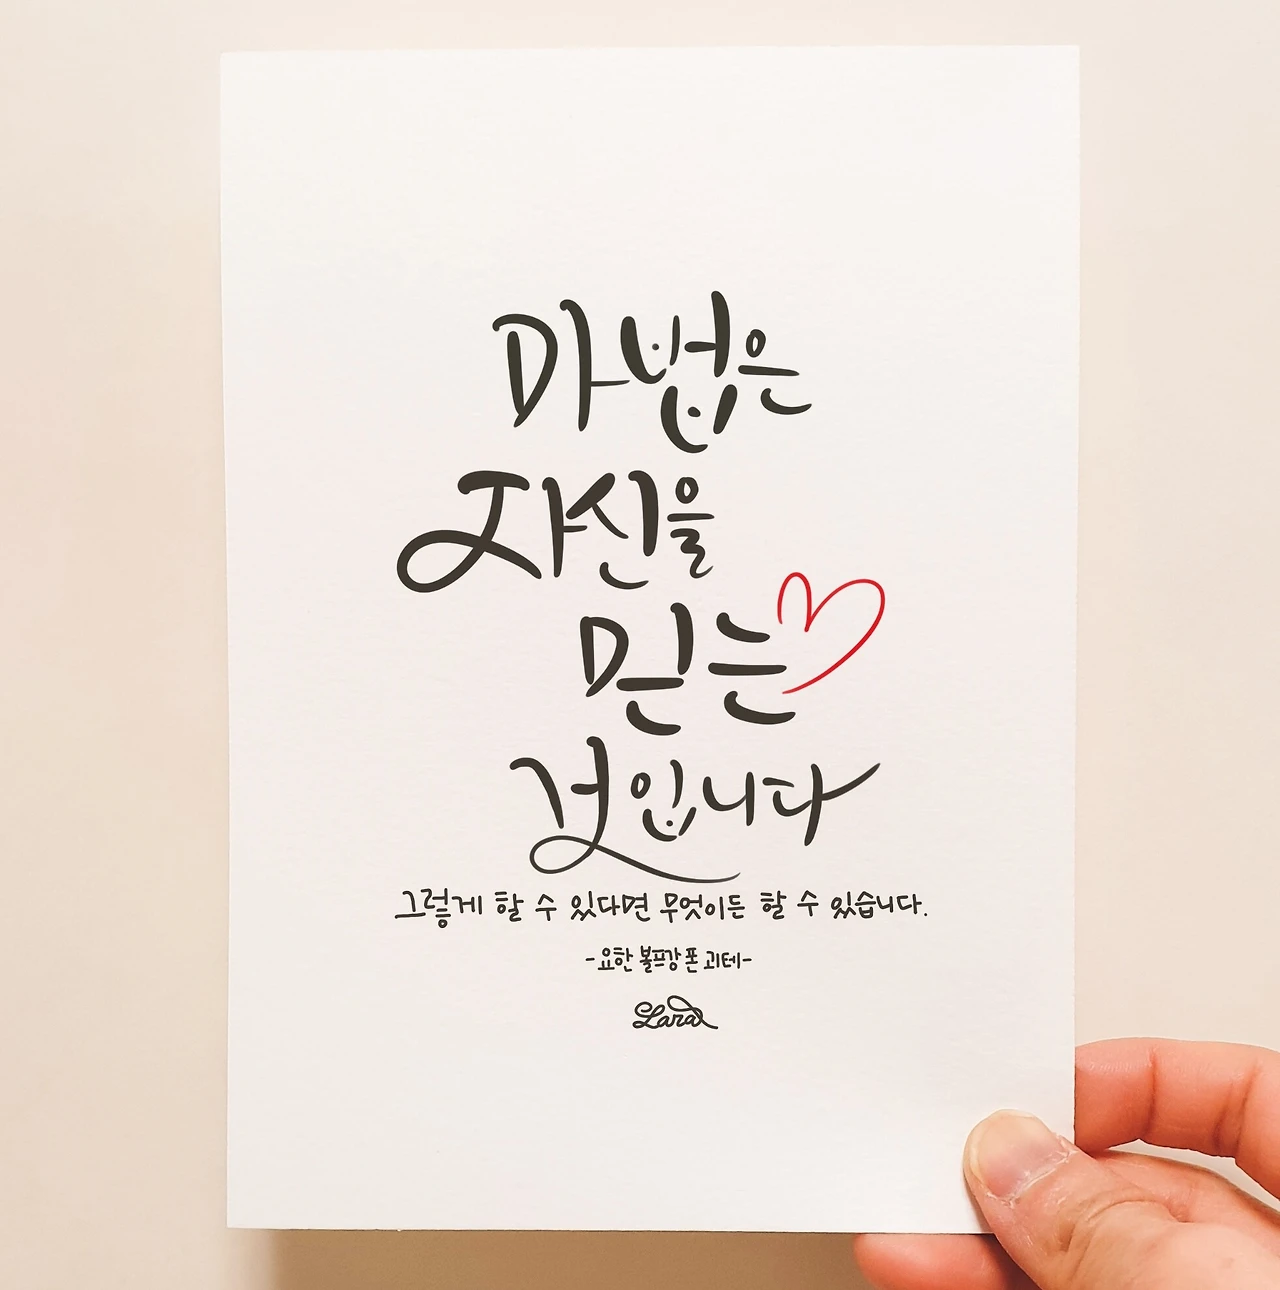 마법은
자신을
믿는
것입니다
그렇게 할 수 있다면 무엇이든 할 수 있습니다.
-요한 볼프강 폰 괴테-
Lara